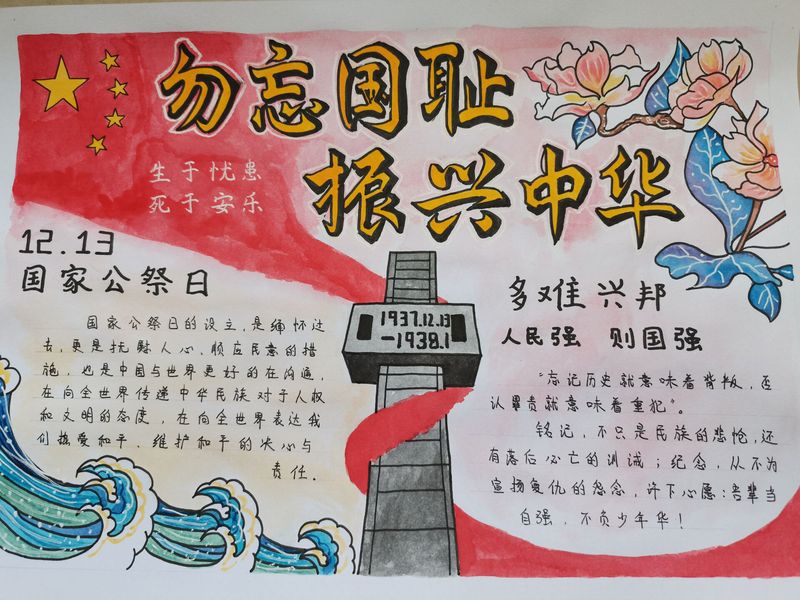 勿忘国耻
振兴中华
生于忧患
死于安乐
12.13
国家公祭日
国家公祭日的设立,是缅怀过
去,更是抚慰人心、顺应民意的措
施,也是中国与世界更好的在沟通,
在向全世界传递中华民族对于人权
和文明的态度,在向全世界表达我
们热爱和平、维护和平的决心与
责任.
1937.12.13
-1938.1
多难兴邦
人民强 则国强
"忘记历史就意味着背叛,否
认罪责就意味着重犯"。
铭记,不只是民族的悲怆,还
有落后必亡的训诫;纪念,从不为
宣扬复仇的怨念,许下心愿:吾辈当
自强,不负少年华!